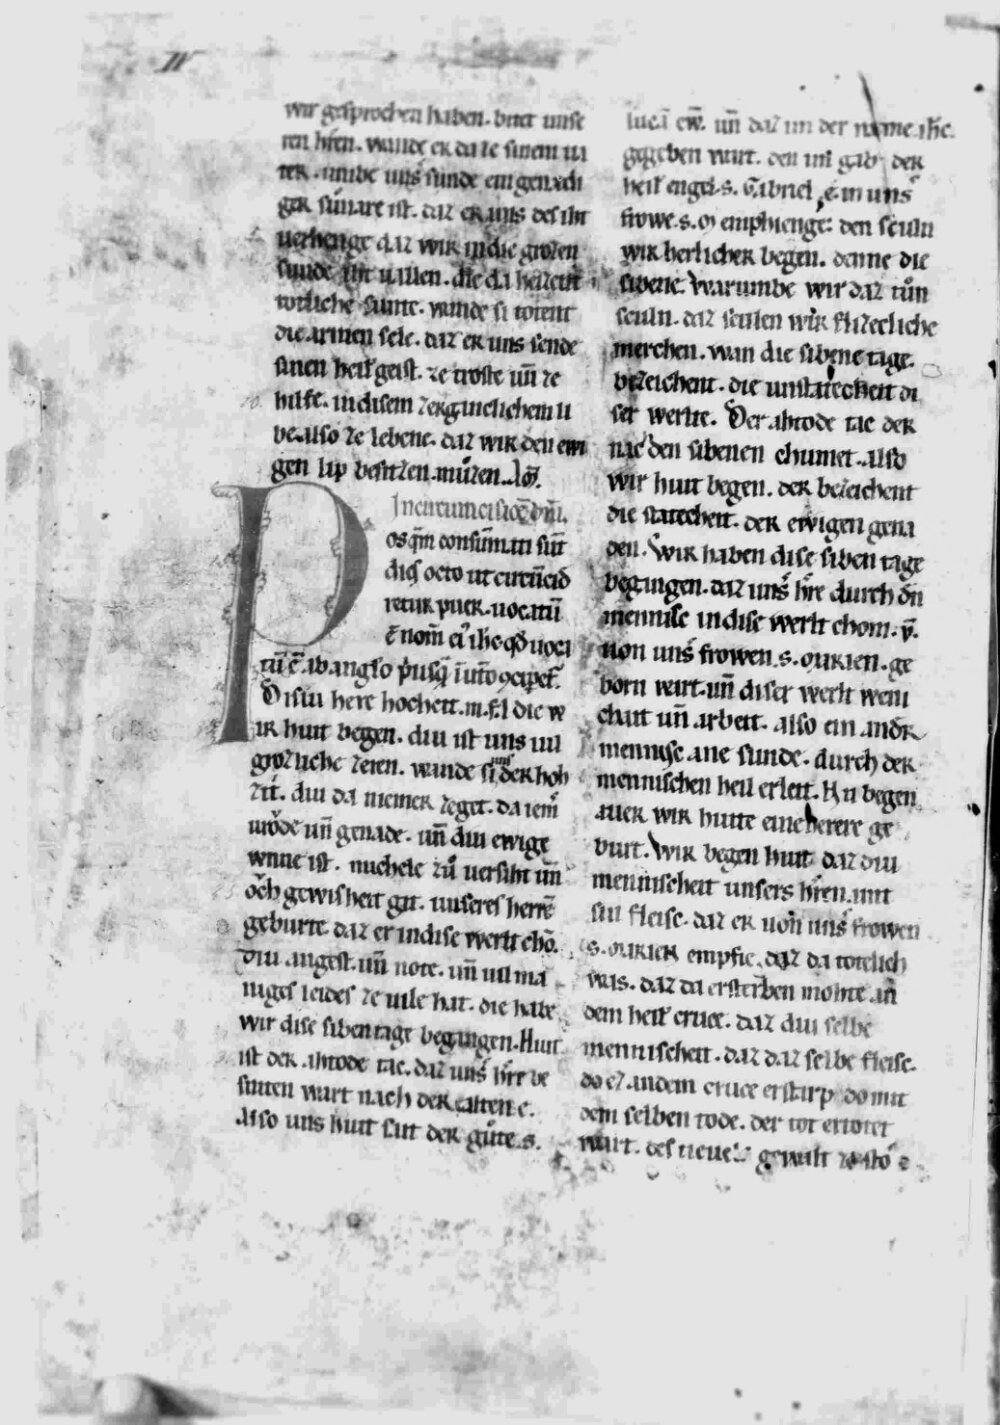 IV
wir gesprochen haben. bitet unse
ren h̄ren. wande er da ze sinem ua
ter. umbe uns̄ sunde ein genædi
ger sůnare ist. daz er uns des iht
uerhenge daz wir in die grozen
sunde iht uallen. die da heizent
totliche sunte. wande si totent
die armen sele. daz er uns sende
sinen heil̄ geist. ze troste uñ ze
hilfe. in disem zerganclichem li
be. also ze lebene. daz wir den ewi
gen lip besitzen. můzen. am̄.
In circumcisiōe dn̄i.
Postq̄m consūmati sūt
dies octo ut circūcid
retur puer. uocatū
ē nom̄ ei' ih̄c qđ uoca
tū ē ab anglo p̄usq̄ ī utō ɔcipet̄.
Disiu here hochzit. m. f. l. die w
ir huit begen. diu ist uns uil
grozliche zeren. wande si uns der hoh
zit. diu da niemer zeget. da iem̄
frǒde uñ genade. uñ diu ewige
wnne ist. michele zů uersiht uñ
ǒch gewisheit git. unseres herrē
geburte. daz er in dise werlt chō.
diu angest. uñ note. uñ uil ma
niges leides ze uile hat. die habe
wir dise siben tage begangen. Huit
ist der ahtode tac. daz uns̄ h̄rre be
sniten wart nach der alten e.
Also uns huit sait der gůte. s.
lucas ew̄. uñ daz im der name. ih̄c.
gegeben wart. den im gab der
heil̄ engel. s. Gabriel, e. in uns̄
frowe. s. M emphienge. den sculn
wir herlicher begen. denne die
sibene. Warumbe wir daz tůn
sculn. daz sculen wir flizecliche
merchen. wan die sibene tage.
bezeichent. die unstatecheit di
ser werlte. Der ahtode tac der
nac' den sibenen chumet. also
wir huit begen. der bezeichent
die statecheit. der ewigen gena
den. Wir haben dise siben tage
begangen. daz uns̄ h̄re durch dn̄
mennisc in dise werlt chom. ỹ.
uon uns̄ frowen. s. MARIEN. ge
born wart. uñ diser werlt weni
chait uñ arbeit. also ein andr̄
mennisc. ane sunde. durch der
mennischen heil erleit. Nu begen
auer wir huite eine herere ge
burt. Wir begen huit daz diu
mennischeit unsers h̄ren. mit
siu fleisc. daz er uon uns̄ frowen
s. MARIEN empfie. daz da totelich
was. daz da ersterben mohte. an
dem heil̄ cruce. daz diu selbe
mennischeit. daz daz selbe fleisc.
do ez andem cruce erstarp do mit
dem selben tode. der tot ertotet
wart. des tieuels gewalt zestō